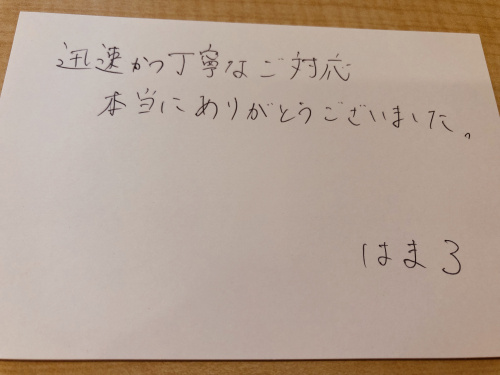 迅速かつ丁寧なご対応
本当にありがとうございました。
はまろ